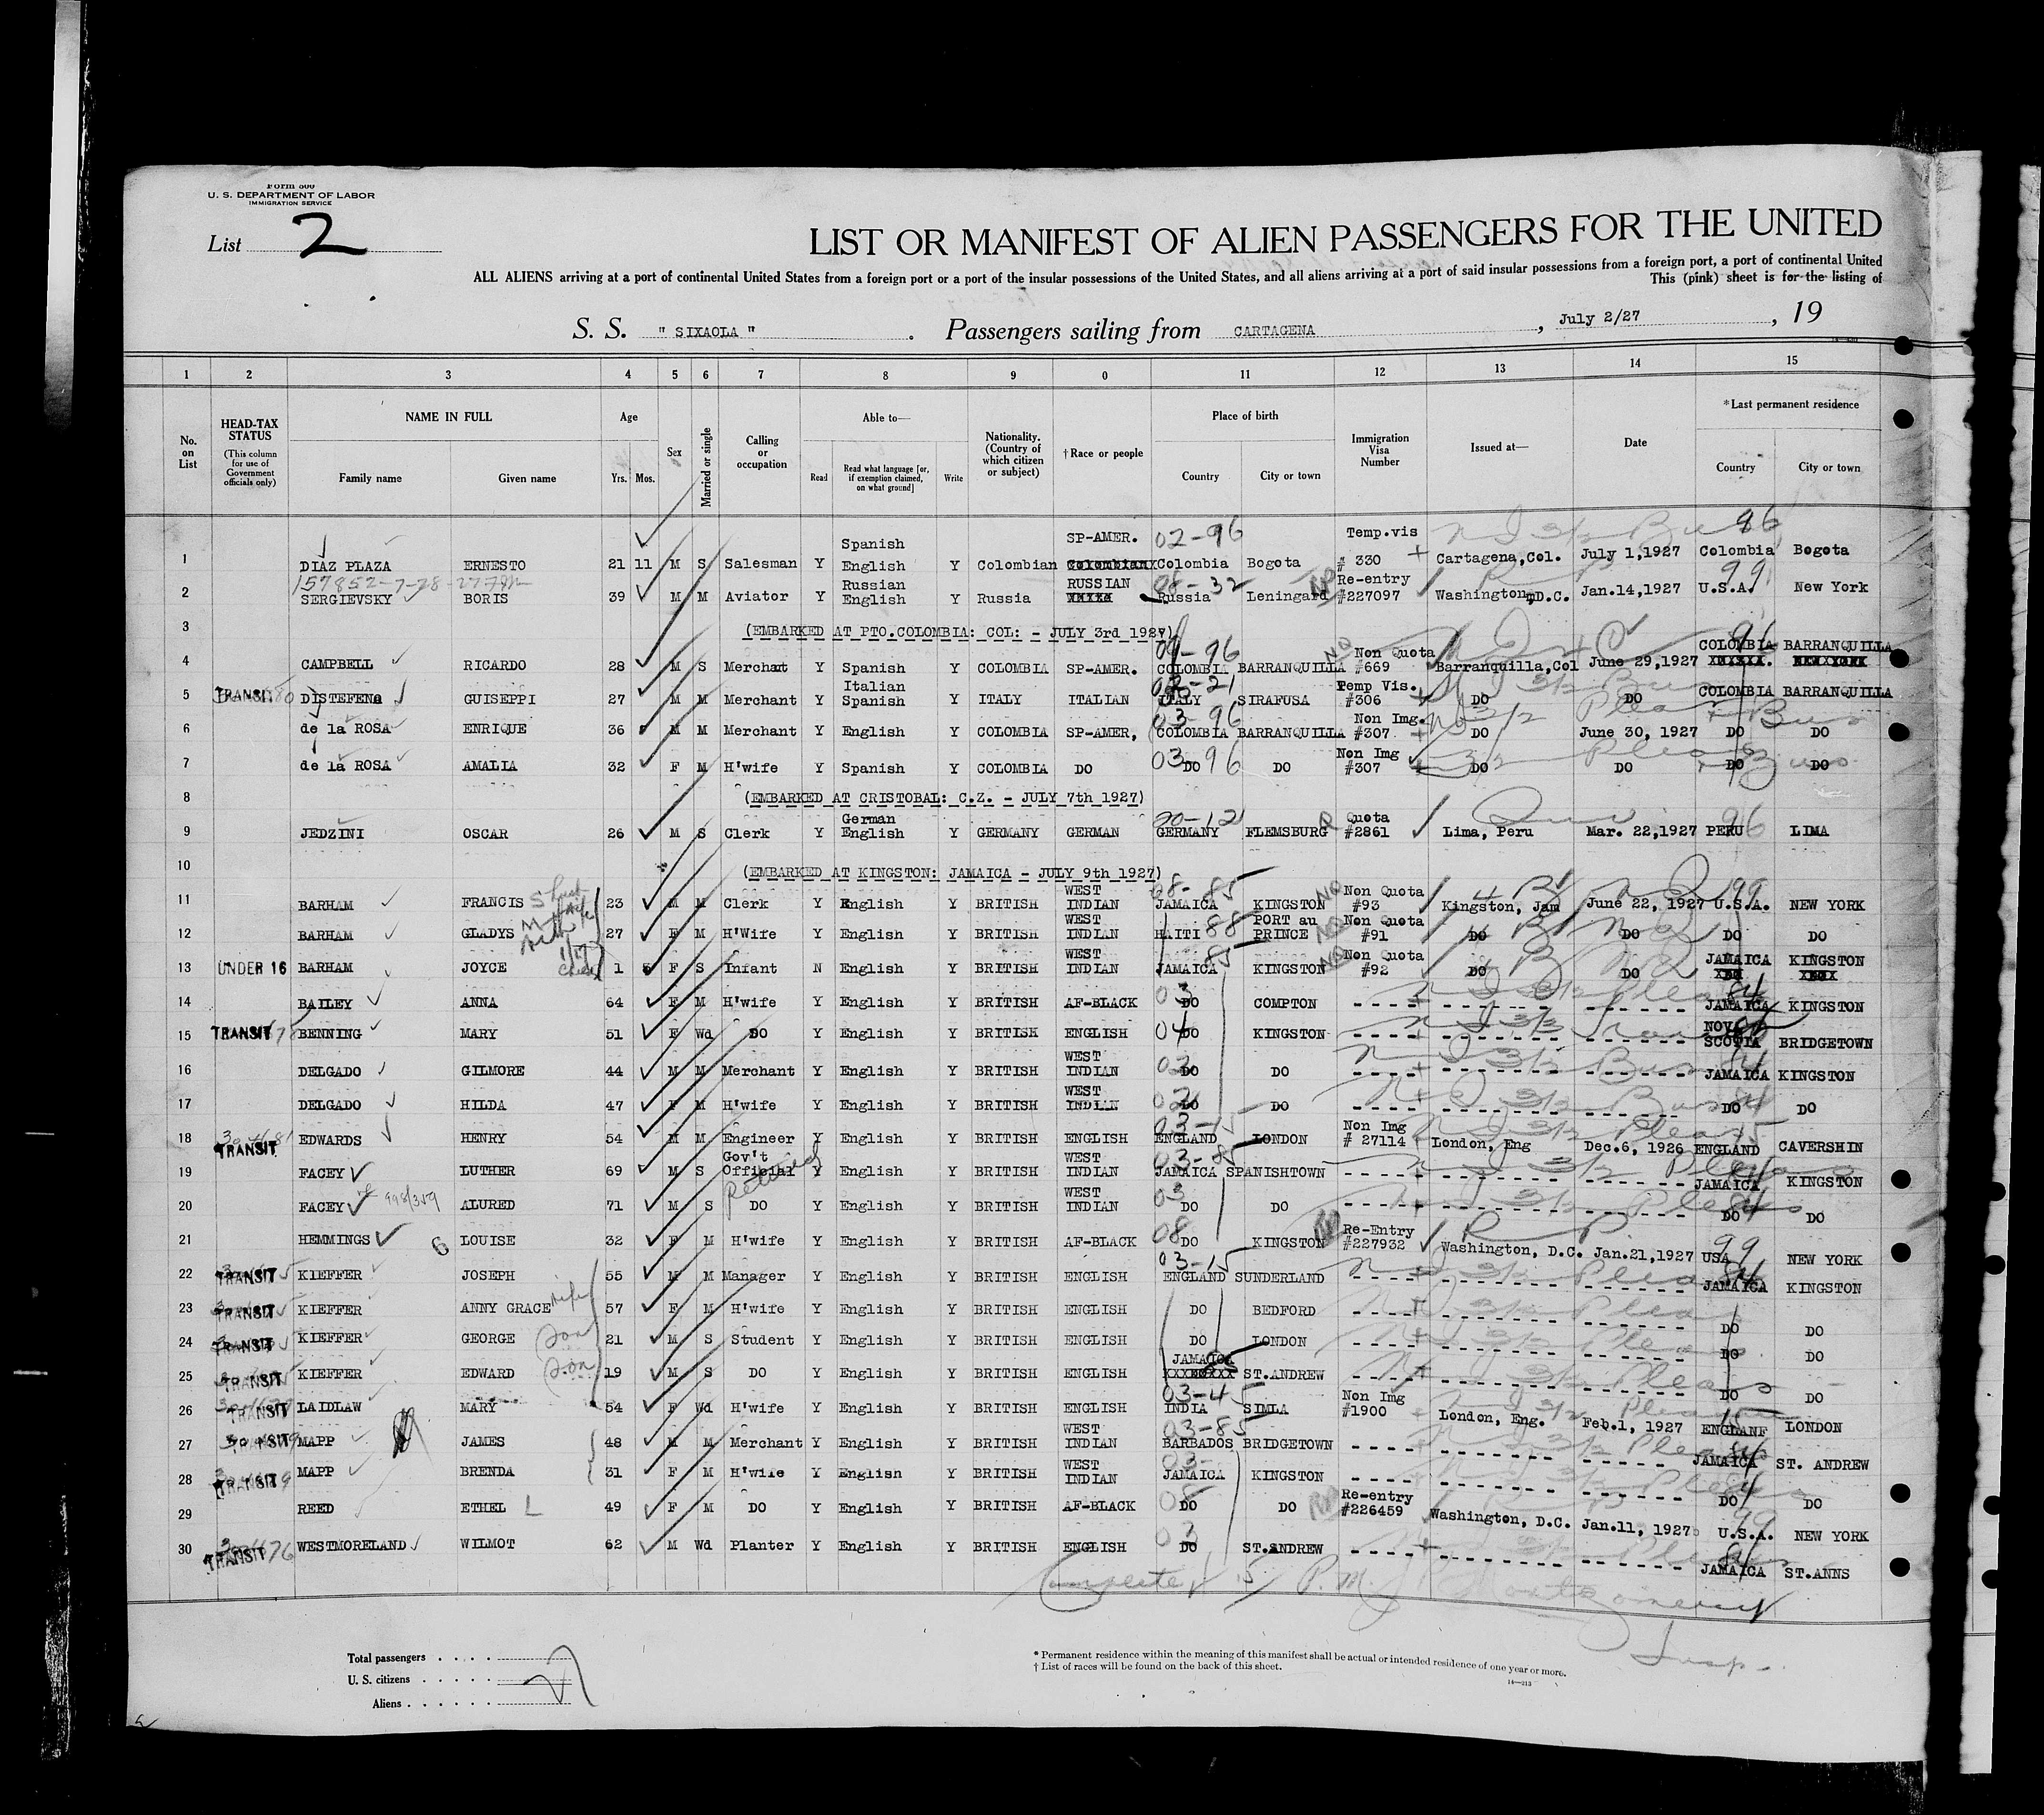 Form 500
U. S. DEPARTMENT OF LABOR
IMMIGRATION SERVICE
List 2
LIST OR MANIFEST OF ALIEN PASSENGERS FOR THE UNITED
ALL ALIENS arriving at a port of continental United States from a foreign port or a port of the insular possessions of the United States, and all aliens arriving at a port of said insular possessions from a foreign port, a port of continental United
This (pink) sheet is for the listing of
S. S. " SIXAOLA " . Passengers sailing from CARTAGENA , July 2/27 , 19
1 2 3 4 5 6 7 8 9 0 11 12 13 14 15
No. on List
HEAD-TAX STATUS (This column for use of Government officials only)
NAME IN FULL Family name Given name
Age Yrs. Mos.
Sex
Married or single
Calling or occupation
Able to— Read Read what language [or, if exemption claimed, on what ground] Write
Nationality. (Country of which citizen or subject)
†Race or people
Place of birth Country City or town
Immigration Visa Number
Issued at—
Date
*Last permanent residence Country City or town
1 DIAZ PLAZA ERNESTO 21 11 M S Salesman Y Spanish English Y Colombian SP-AMER. 02-96 Colombia Bogota Temp.vis # 330 Cartagena,Col. July 1,1927 Colombia Bogota
157852-7-28-27
2 SERGIEVSKY BORIS 39 M M Aviator Y Russian English Y Russia RUSSIAN 08-32 Russia Leningard Re-entry #227097 Washington,D.C. Jan.14,1927 U.S.A. 99 New York
3 (EMBARKED AT PTO.COLOMBIA: COL: - JULY 3rd 1927)
4 CAMPBELL RICARDO 28 M S Merchant Y Spanish Y COLOMBIA SP-AMER. COLOMBIA BARRANQUILLA Non Quota #669 Barranquilla,Col June 29,1927 COLOMBIA BARRANQUILLA
5 TRANSIT DISTEFENO GUISEPPI 27 M M Merchant Y Italian Spanish Y ITALY ITALIAN ITALY SIRAFUSA Temp Vis. #306 DO DO COLOMBIA BARRANQUILLA
6 de la ROSA ENRIQUE 36 M M Merchant Y English Y COLOMBIA SP-AMER, 03-96 COLOMBIA BARRANQUILLA Non Img. #307 DO June 30, 1927 DO DO
7 de la ROSA AMALIA 32 F M H'wife Y Spanish Y COLOMBIA DO 03 DO 96 DO Non Img #307 DO DO DO DO
8 (EMBARKED AT CRISTOBAL: C.Z. - JULY 7th 1927)
9 JEDZINI OSCAR 26 M S Clerk Y German English Y GERMANY GERMAN 20-12 GERMANY FLEMSBURG Quota #2861 Lima, Peru Mar. 22,1927 PERU 96 LIMA
10 (EMBARKED AT KINGSTON: JAMAICA - JULY 9th 1927)
11 BARHAM FRANCIS 23 M M Clerk Y English Y BRITISH WEST INDIAN 08-85 JAMAICA KINGSTON Non Quota #93 Kingston, Jam June 22, 1927 U.S.A. NEW YORK
12 BARHAM GLADYS 27 F M H'Wife Y English Y BRITISH WEST INDIAN HAITI 88 PORT au PRINCE Non Quota #91 DO DO DO DO
13 UNDER 16 BARHAM JOYCE 1 F S Infant N English Y BRITISH WEST INDIAN JAMAICA 85 KINGSTON Non Quota #92 DO DO JAMAICA KINGSTON
14 BAILEY ANNA 64 F M H'wife Y English Y BRITISH AF-BLACK 03 DO COMPTON JAMAICA KINGSTON
15 TRANSIT BENNING MARY 51 F Wd DO Y English Y BRITISH ENGLISH 04 DO KINGSTON NOVA SCOTIA BRIDGETOWN
16 DELGADO GILMORE 44 M M Merchant Y English Y BRITISH WEST INDIAN DO DO JAMAICA KINGSTON
17 DELGADO HILDA 47 F M H'wife Y English Y BRITISH WEST INDIAN DO DO DO DO
18 TRANSIT EDWARDS HENRY 54 M M Engineer Y English Y BRITISH ENGLISH 03-15 ENGLAND LONDON Non Img # 27114 London, Eng Dec.6, 1926 ENGLAND CAVERSHIN
19 FACEY LUTHER 69 M S Gov't Official Retired Y English Y BRITISH WEST INDIAN 03-85 JAMAICA SPANISHTOWN JAMAICA KINGSTON
20 FACEY ALURED 71 M S DO Y English Y BRITISH WEST INDIAN 03 DO DO DO DO
21 HEMMINGS 6 LOUISE 32 F M H'wife Y English Y BRITISH AF-BLACK 08 DO KINGSTON Re-Entry #227932 Washington, D.C. Jan.21,1927 USA 99 NEW YORK
22 TRANSIT KIEFFER JOSEPH 55 M M Manager Y English Y BRITISH ENGLISH 03-15 ENGLAND SUNDERLAND JAMAICA KINGSTON
23 TRANSIT KIEFFER ANNY GRACE wife 57 F M H'wife Y English Y BRITISH ENGLISH DO BEDFORD DO DO
24 TRANSIT KIEFFER GEORGE son 21 M S Student Y English Y BRITISH ENGLISH DO LONDON DO DO
25 TRANSIT KIEFFER EDWARD son 19 M S DO Y English Y BRITISH ENGLISH JAMAICA ST.ANDREW DO DO
26 TRANSIT LAIDLAW MARY 54 F Wd H'wife Y English Y BRITISH ENGLISH 03-45 INDIA SIMLA Non Img #1900 London, Eng. Feb.1, 1927 ENGLANF LONDON
27 TRANSIT MAPP JAMES 48 M M Merchant Y English Y BRITISH WEST INDIAN 03-85 BARBADOS BRIDGETOWN JAMAICA ST. ANDREW
28 TRANSIT MAPP BRENDA 31 F M H'wife Y English Y BRITISH WEST INDIAN 03- JAMAICA KINGSTON DO DO
29 REED ETHEL L 49 F M DO Y English Y BRITISH AF-BLACK 08 DO DO Re-entry #226459 Washington, D.C. Jan.11, 1927 U.S.A. 99 NEW YORK
30 TRANSIT WESTMORELAND WILMOT 62 M Wd Planter Y English Y BRITISH ENGLISH 03 DO ST.ANDREW JAMAICA ST.ANNS
Complete P. M. Montgomery
Insp.
Total passengers
U. S. citizens
Aliens
27
* Permanent residence within the meaning of this manifest shall be actual or intended residence of one year or more.
† List of races will be found on the back of this sheet.